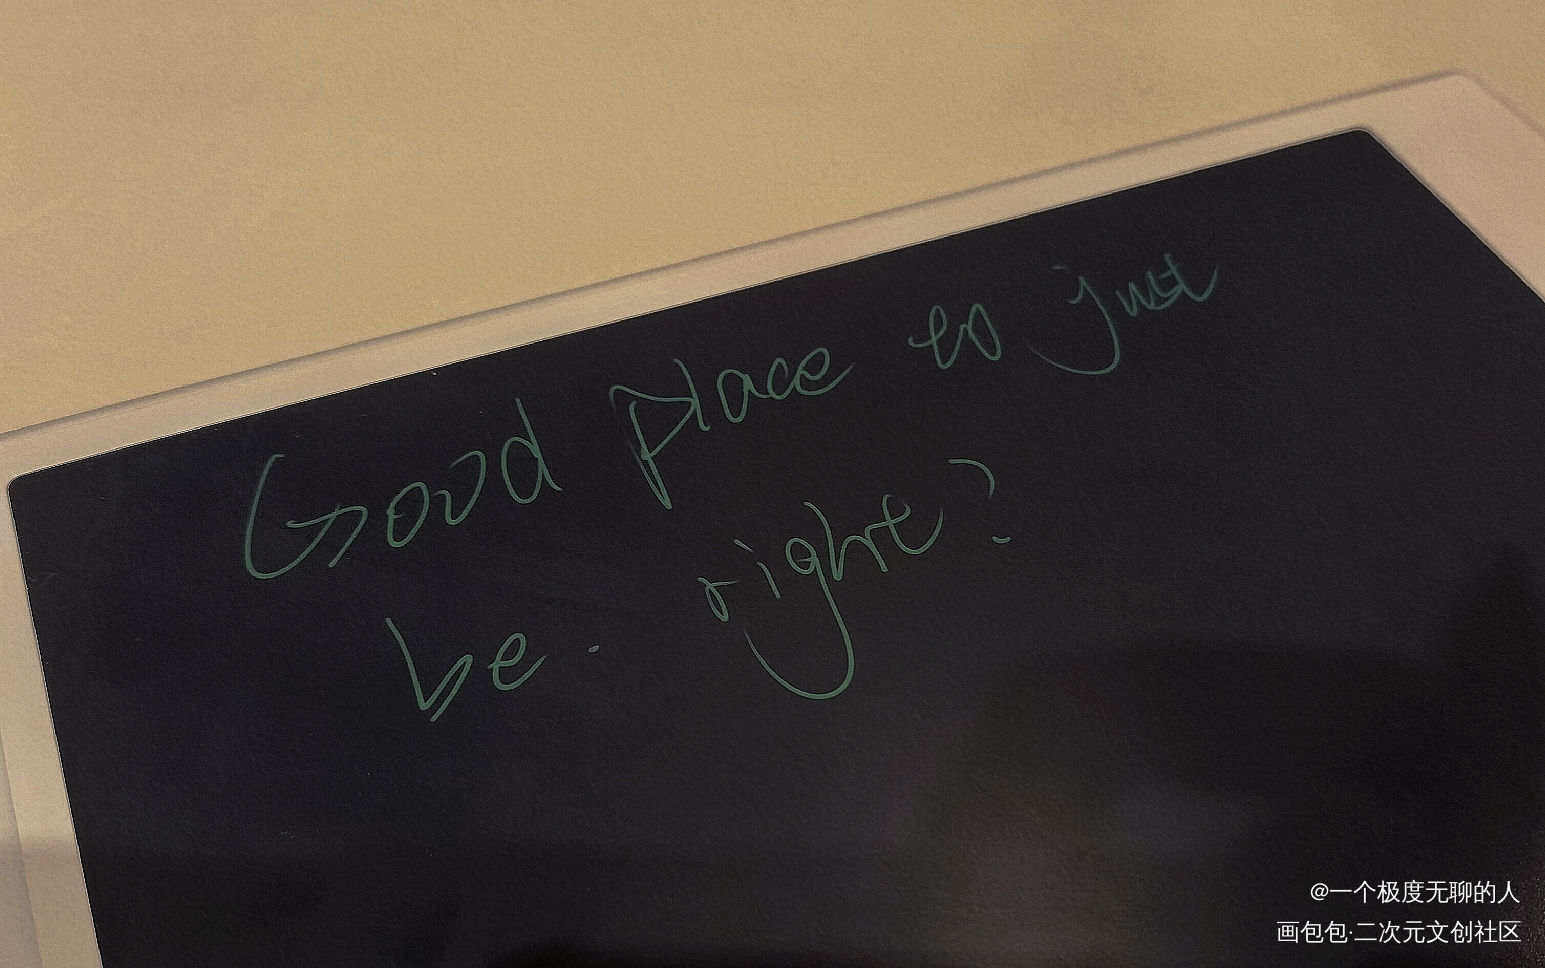 Good place to just
be. right?
@一个极度无聊的人
画包包·二次元文创社区